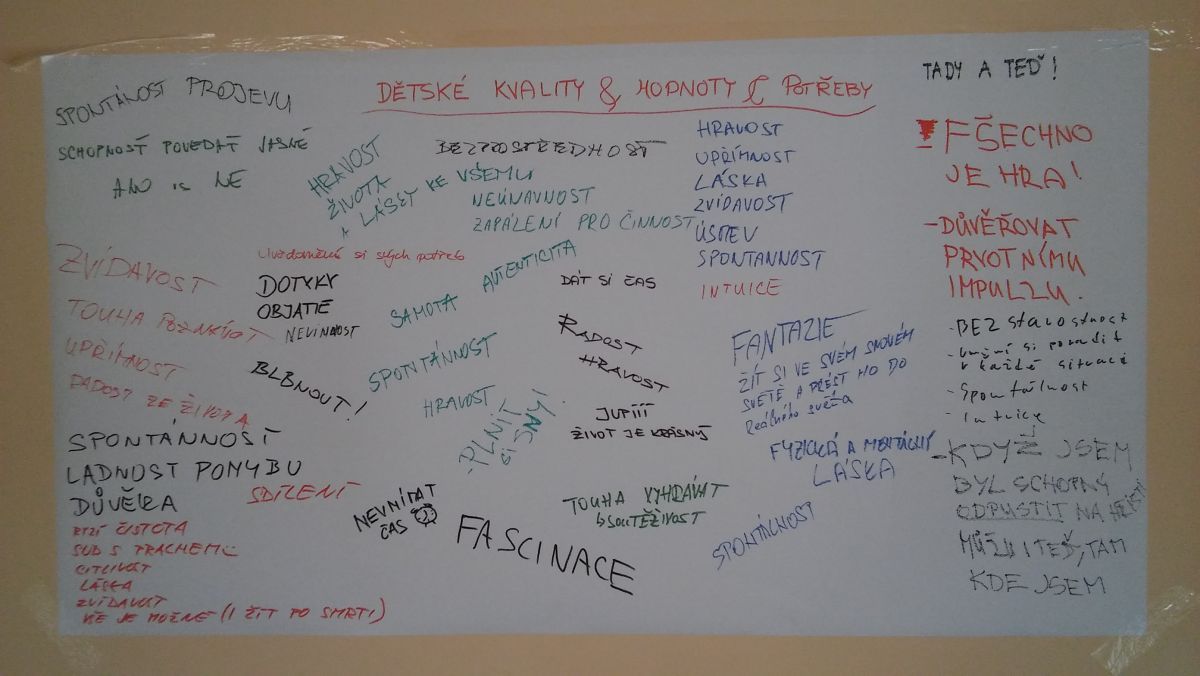 DĚTSKÉ KVALITY & HODNOTY & POTŘEBY
SPONTÁNOST PROJEVU
SCHOPNOSŤ POVEDAŤ JASNÉ
ANO is NE
HRAVOST
ŽIVOTA
A LÁSKY KE VŠEMU
BEZPROSTŘEDNOSŤ
NEÚNAVNOST
ZAPÁLENÍ PRO ČINNOST
HRAVOST
UPŘÍMNOST
LÁSKA
ZVÍDAVOST
ÚSMEV
SPONTANNOST
INTUICE
TADY A TEĎ!
! FŠECHNO
JE HRA!
- DŮVĚŘOVAT
PRVOTNÍMU
IMPULZU.
- BEZ starostnost
- Umění si poradit
v každé situaci
- Spontálnost
- Intuice
- KDYŽ JSEM
BYL SCHOPNÝ
ODPUSTIT NA
MŮŽU I TEĎ, TAM
KDE JSEM
ZVÍDAVOST
TOUHA POZNÁVAT
UPŘÍMNOST
RADOST ZE ŽIVOTA
SPONTÁNNOSŤ
LADNOST POHYBU
DŮVĚRA
RYZÍ ČISTOTA
SUB S STRACHEM
CITLIVOST
LÁSKA
ZVÍDAVOST
VŠE JE MOŽNÉ (I ŽÍT PO SMRTI)
Uvědomění si svých potřeb
DOTYKY
OBJATIE
NEVINNOST
BLBNOUT!
SDÍLENÍ
NEVNÍMAT
ČAS
AUTENTICITA
SAMOTA
SPONTÁNNOST
HRAVOST
- PLNIT
SI SNY!
FASCINACE
DÁT SI ČAS
RADOST
HRAVOST
JUPÍÍÍ
ŽIVOT JE KRÁSNÝ
TOUHA VYHRÁVAT
↳ SOUTĚŽIVOST
FANTAZIE
ŽÍT SI VE SVÉM SNOVÉM
SVĚTĚ A PŘÉST HO DO
Reálného světa
FYZICKÁ A MENTÁLNÍ
LÁSKA
SPONTÁLNOST